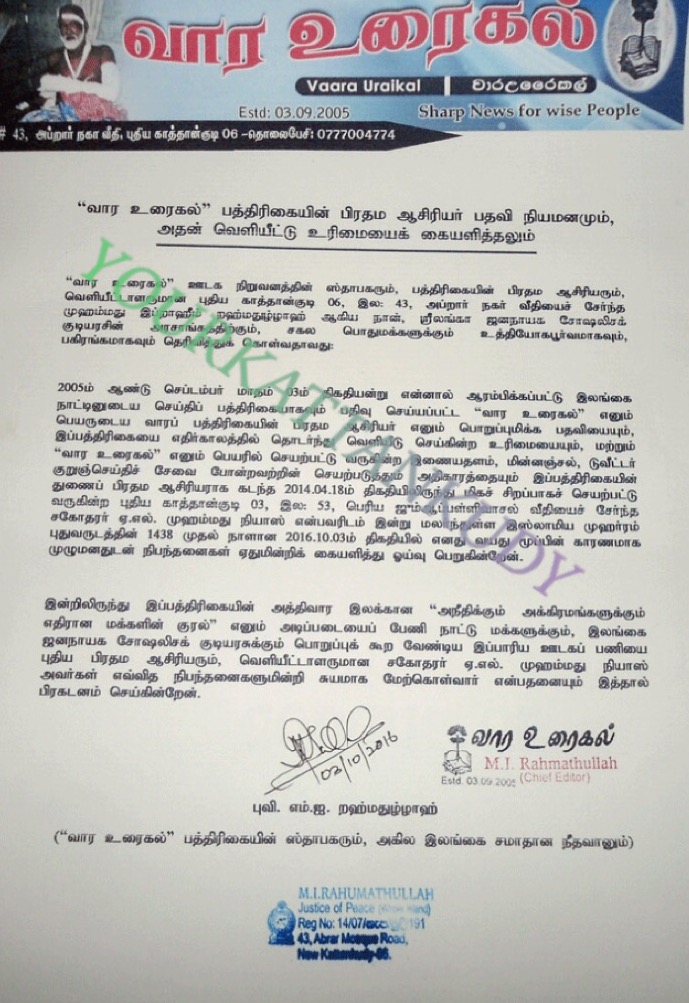 வார உரைகல்
Vaara Uraikal | වාරඋරෛකල්
Estd: 03.09.2005 Sharp News for wise People
# 43, அப்றார் நகர் வீதி, புதிய காத்தான்குடி 06 -தொலைபேசி: 0777004774
“வார உரைகல்” பத்திரிகையின் பிரதம ஆசிரியர் பதவி நியமனமும்,
அதன் வெளியீட்டு உரிமையைக் கையளித்தலும்
“வார உரைகல்” ஊடக நிறுவனத்தின் ஸ்தாபகரும், பத்திரிகையின் பிரதம ஆசிரியரும்,
வெளியீட்டாளருமான புதிய காத்தான்குடி 06, இல: 43, அப்றார் நகர் வீதியைச் சேர்ந்த
முஹம்மது இப்றாஹீம் றஹ்மதுழ்ழாஹ் ஆகிய நான், ஸ்ரீலங்கா ஜனநாயக சோஷலிசக்
குடியரசின் அரசாங்கத்திற்கும், சகல பொதுமக்களுக்கும் உத்தியோகபூர்வமாகவும்,
பகிரங்கமாகவும் தெரிவித்துக் கொள்வதாவது:
2005ம் ஆண்டு செப்டம்பர் மாதம் 03ம் திகதியன்று என்னால் ஆரம்பிக்கப்பட்டு இலங்கை
நாட்டினுடைய செய்திப் பத்திரிகையாகவும் பதிவு செய்யப்பட்ட “வார உரைகல்” எனும்
பெயருடைய வாரப் பத்திரிகையின் பிரதம ஆசிரியர் எனும் பொறுப்புமிக்க பதவியையும்,
இப்பத்திரிகையை எதிர்காலத்தில் தொடர்ந்து வெளியீடு செய்கின்ற உரிமையையும், மற்றும்
“வார உரைகல்” எனும் பெயரில் செயற்பட்டு வருகின்ற இணையதளம், மின்னஞ்சல், டுவீட்டர்
குறுஞ்செய்திச் சேவை போன்றவற்றின் செயற்படுத்தும் அதிகாரத்தையும் இப்பத்திரிகையின்
துணைப் பிரதம ஆசிரியராக கடந்த 2014.04.18ம் திகதியிலிருந்து மிகச் சிறப்பாகச் செயற்பட்டு
வருகின்ற புதிய காத்தான்குடி 03, இல: 53, பெரிய ஜும்ஆப்பள்ளிவாசல் வீதியைச் சேர்ந்த
சகோதரர் ஏ.எல். முஹம்மது நியாஸ் என்பவரிடம் இன்று மலர்ந்துள்ள இஸ்லாமிய முஹர்ரம்
புதுவருடத்தின் 1438 முதல் நாளான 2016.10.03ம் திகதியில் எனது வயது மூப்பின் காரணமாக
முழுமனதுடன் நிபந்தனைகள் ஏதுமின்றிக் கையளித்து ஓய்வு பெறுகின்றேன்.
இன்றிலிருந்து இப்பத்திரிகையின் அத்திவார இலக்கான “அநீதிக்கும் அக்கிரமங்களுக்கும்
எதிரான மக்களின் குரல்” எனும் அடிப்படையைப் பேணி நாட்டு மக்களுக்கும், இலங்கை
ஜனநாயக சோஷலிசக் குடியரசுக்கும் பொறுப்புக் கூற வேண்டிய இப்பாரிய ஊடகப் பணியை
புதிய பிரதம ஆசிரியரும், வெளியீட்டாளருமான சகோதரர் ஏ.எல். முஹம்மது நியாஸ்
அவர்கள் எவ்வித நிபந்தனைகளுமின்றி சுயமாக மேற்கொள்வார் என்பதனையும் இத்தால்
பிரகடனம் செய்கின்றேன்.
02/10/2016
வார உரைகல்
M.I. Rahmathullah
Estd. 03.09.2005 (Chief Editor)
புவி. எம்.ஐ. றஹ்மதுழ்ழாஹ்
(“வார உரைகல்” பத்திரிகையின் ஸ்தாபகரும், அகில இலங்கை சமாதான நீதவானும்)
M.I.RAHUMATHULLAH
Justice of Peace (Whole Island)
Reg No: 14/07/ 191
43, Abrar Mosque Road,
New Kattankudy-06.
YOURKATTANKUDY